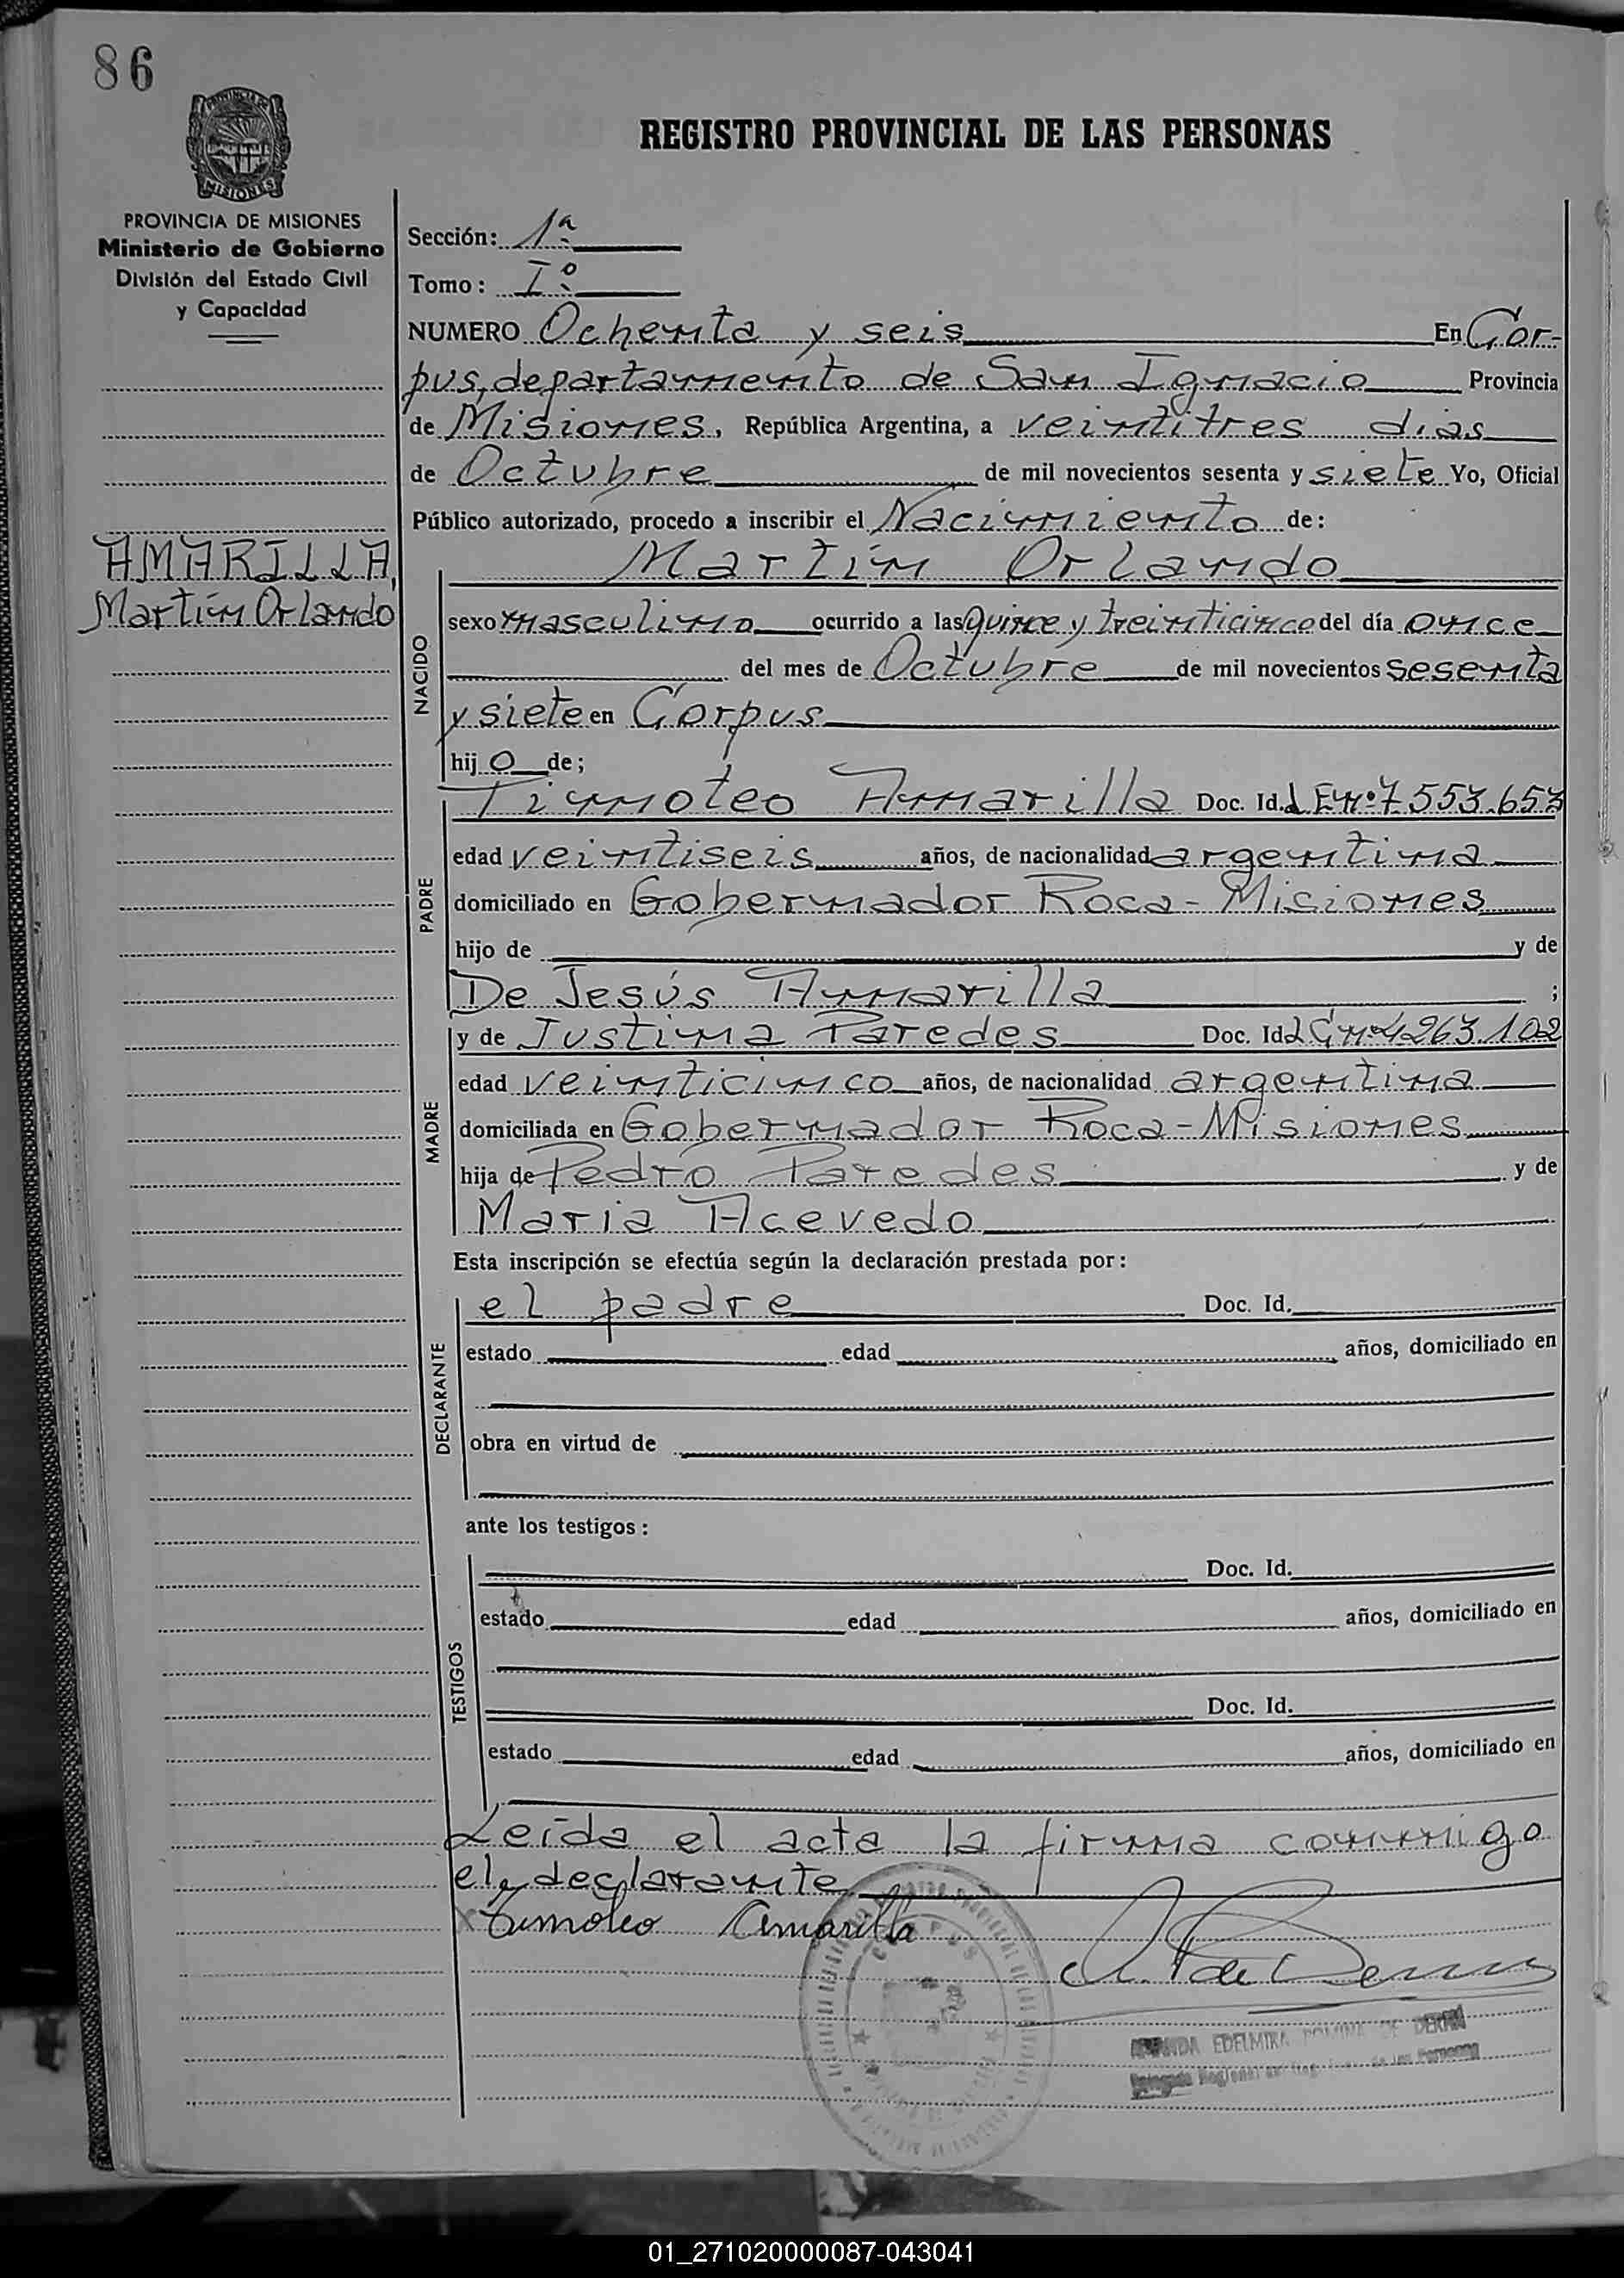 86
PROVINCIA DE
MISIONES
REGISTRO PROVINCIAL DE LAS PERSONAS
PROVINCIA DE MISIONES
Ministerio de Gobierno
División del Estado Civil
y Capacidad
Sección: 1ª
Tomo: Iº
NUMERO Ochenta y seis En Cor-
pus, departamento de San Ignacio Provincia
de Misiones, República Argentina, a veintitres dias
de Octubre de mil novecientos sesenta y siete Yo, Oficial
Público autorizado, procedo a inscribir el Nacimiento de:
AMARILLA,
Martín Orlando
Martín Orlando
NACIDO
sexo masculino ocurrido a las quince y treinticinco del día once
del mes de Octubre de mil novecientos sesenta
y siete en Corpus
hijo de;
PADRE
Timoteo Amarilla Doc. Id. L E nº 7.553.653
edad veintiseis años, de nacionalidad argentina
domiciliado en Gobernador Roca - Misiones
hijo de y de
De Jesús Amarilla ;
MADRE
y de Justina Paredes Doc. Id L C nº 4263.102
edad veinticinco años, de nacionalidad argentina
domiciliada en Gobernador Roca - Misiones
hija de Pedro Paredes y de
Maria Acevedo
Esta inscripción se efectúa según la declaración prestada por:
DECLARANTE
el padre Doc. Id.
estado edad años, domiciliado en
obra en virtud de
ante los testigos:
TESTIGOS
Doc. Id.
estado edad años, domiciliado en
Doc. Id.
estado edad años, domiciliado en
Leída el acta la firma conmigo
el declarante
Timoteo Amarilla
EDELMIRA DE
01_271020000087-043041